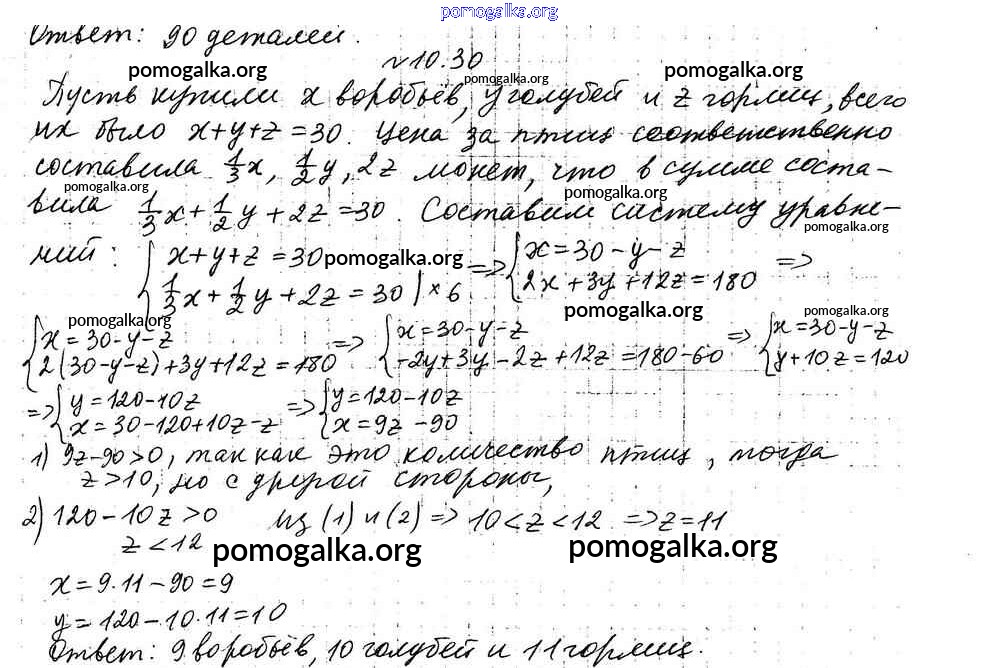 pomogalka.org
Ответ: 90 деталей.
№10.30
pomogalka.org pomogalka.org pomogalka.org
Пусть купили x воробьёв, y голубей и z горлиц, всего
их было x+y+z=30. Цена за птиц соответственно
составила 1/3x, 1/2y, 2z монет, что в сумме соста-
pomogalka.org pomogalka.org
вила 1/3x+1/2y+2z=30. Составим систему уравне-
pomogalka.org
ний: { x+y+z=30 => { x=30-y-z =>
pomogalka.org
1/3x+1/2y+2z=30 | ×6 2x+3y+12z=180
pomogalka.org pomogalka.org pomogalka.org
{ x=30-y-z => { x=30-y-z => { x=30-y-z
2(30-y-z)+3y+12z=180 -2y+3y-2z+12z=180-60 y+10z=120
=> { y=120-10z => { y=120-10z
x=30-120+10z-z x=9z-90
1) 9z-90>0, так как это количество птиц, тогда
z>10, но с другой стороны,
2) 120-10z>0 из (1) и (2) => 10<z<12 => z=11
z<12
pomogalka.org pomogalka.org
x=9·11-90=9
y=120-10·11=10
Ответ: 9 воробьёв, 10 голубей и 11 горлиц.